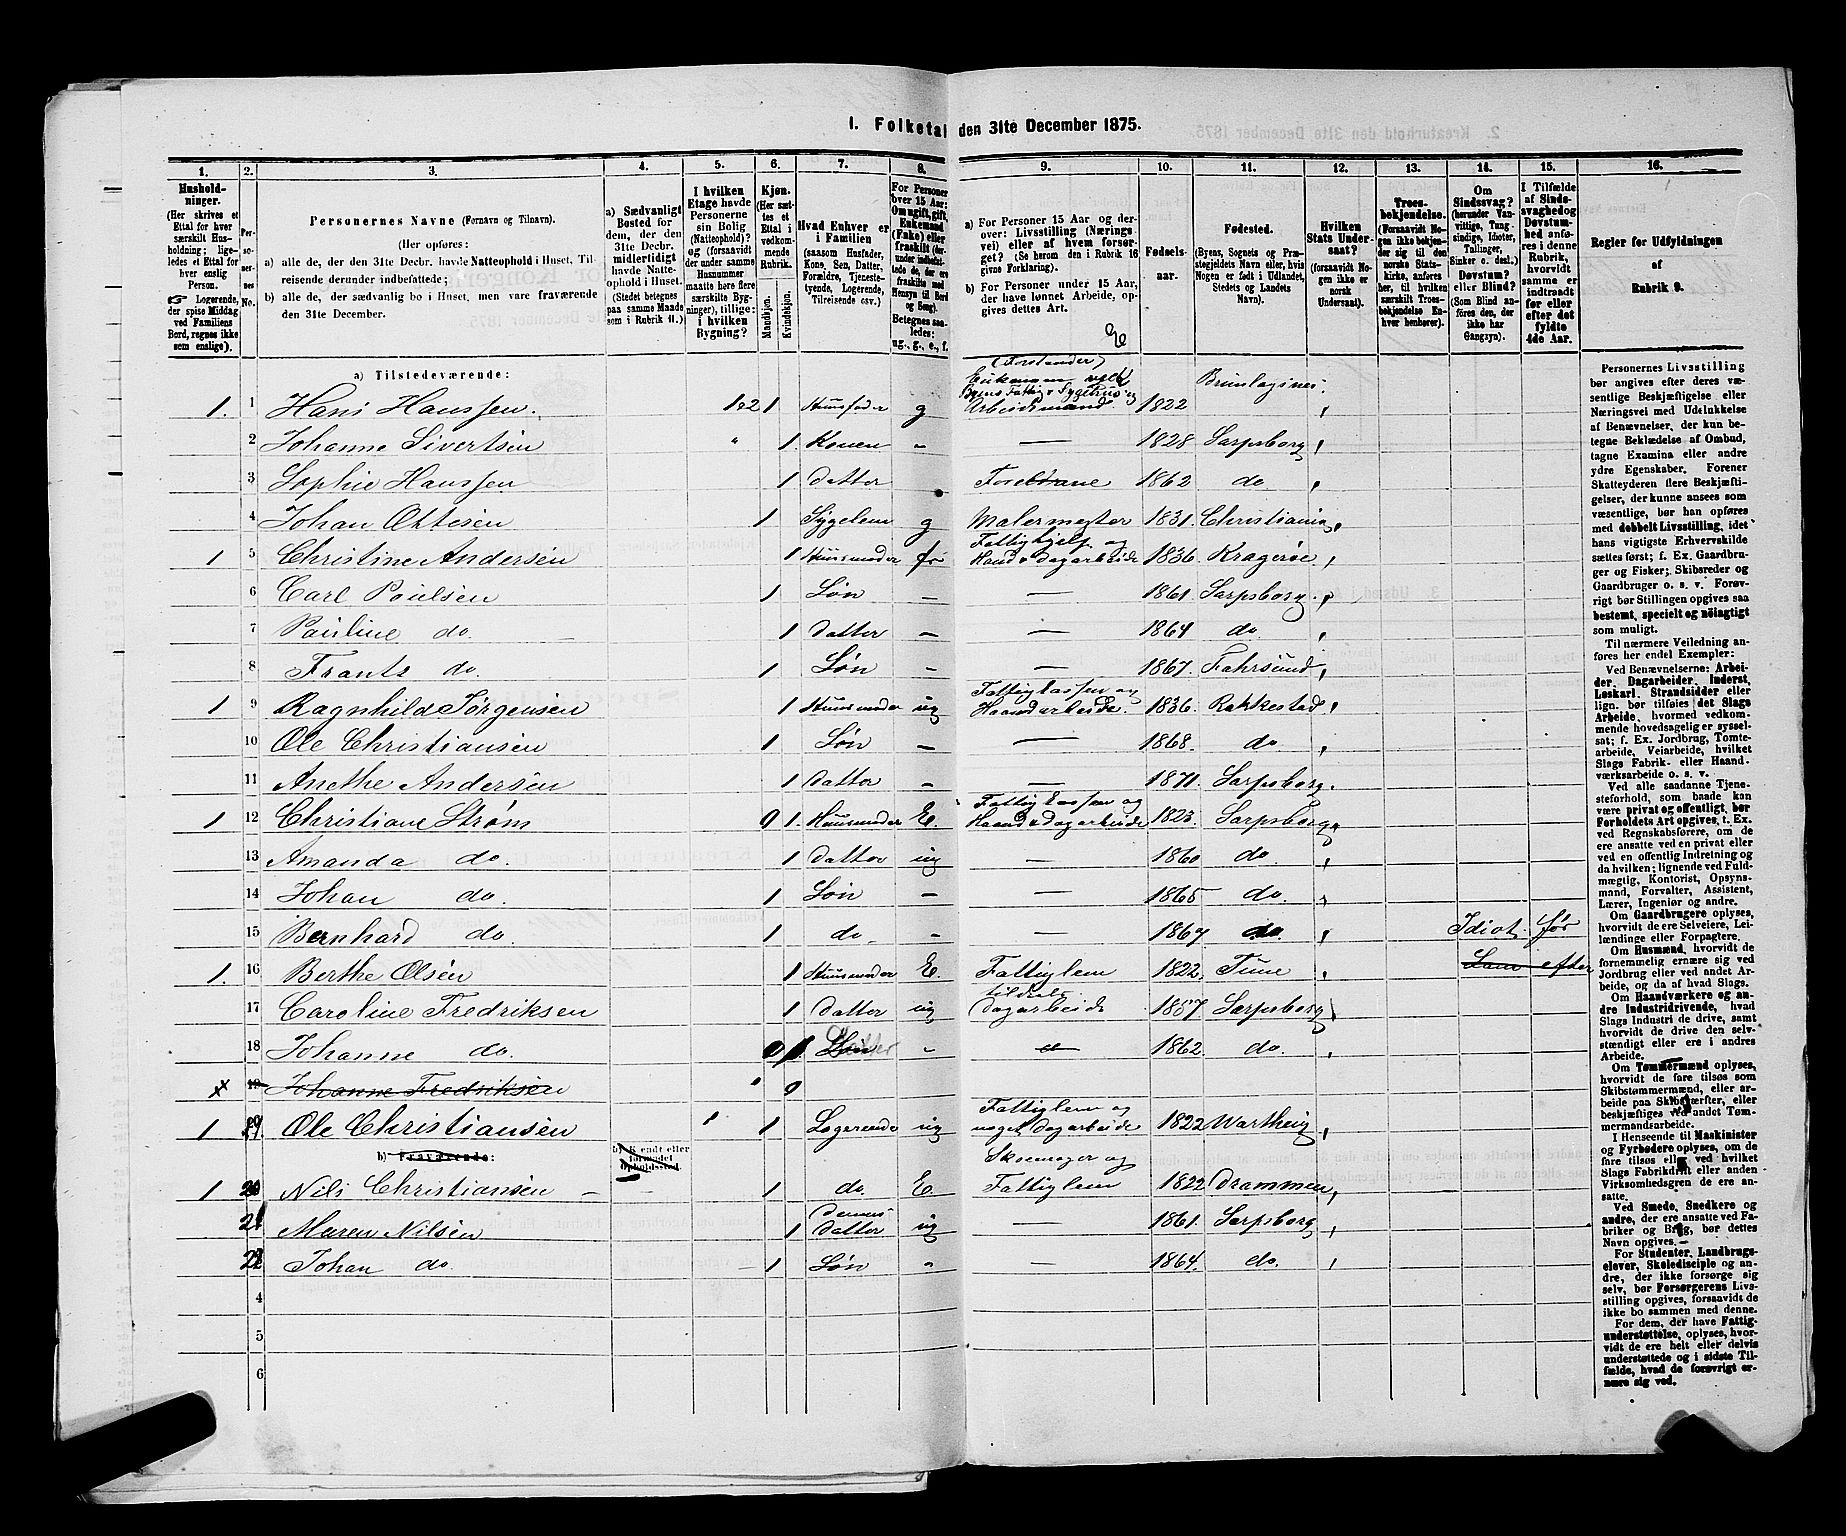 1. Folketal den 31te December 1875.
1. 2. 3. 4. 5. 6. 7. 8. 9. 10. 11. 12. 13. 14. 15. 16.
Husholdninger. (Her skrives et Ettal for hver særskilt Husholdning; ligeledes et Ettal for hver enslig Person. Logerende, der spise Middag ved Familiens Bord, regnes ikke som enslige).
Personernes No.
Personernes Navne (Fornavn og Tilnavn).
(Her opføres:
a) alle de, der den 31te Decbr. havde Natteophold i Huset, Tilreisende derunder indbefattede;
b) alle de, der sædvanlig bo i Huset, men vare fraværende den 31te December.
a) Sædvanligt Bosted for dem, der den 31te Decbr. midlertidigt havde Natteophold i Huset. (Stedet betegnes paa samme Maade som i Rubrik 11.)
I hvilken Etage havde Personerne sin Bolig (Natteophold)? og forsaavidt der under samme Husnummer maatte høre flere særskilte Bygninger), tillige: i hvilken Bygning?
Kjøn. (Her sættes et Ettal i vedkommende Rubrik.
Mandkjøn. Kvindekjøn.
Hvad Enhver er i Familien (saasom Husfader, Kone, Søn, Datter, Forældre, Tjenestetyende, Logerende, Tilreisende osv.)
For Personer over 15 Aar: Om ugift, gift, Enkemand (Enke) eller fraskilt Betegnes saaledes: ug., g., e., f.
a) For Personer 15 Aar og derover: Livsstilling (Næringsvei) eller af hvem forsørget? (Se herom den i Rubrik 16 givne Forklaring).
b) For Personer under 15 Aar, der have lønnet Arbeide, opgives dettes Art.
Fødselsaar.
Fødested. (Byens, Sognets og Præstegjeldets Navn eller, hvis Nogen er født i Udlandet, Stedets og Landets Navn).
Hvilken Stats Undersaat? (forsaavidt Nogen ikke er norsk Undersaat).
Troesbekjendelse. (Forsaavidt Nogen ikke bekjender sig til den norske Statskirke, anføres her, til hvilken særskilt Troesbekjendelse Enhver henhører).
Om Sindssvag? (herunder Vanvittige, Tungsindige, Idioter, Tullinger, Sinker o. desl.) Døvstum? eller Blind? (Som Blind anføres den, der ikke har Gangsyn).
I Tilfælde af Sindssvaghed og Døvstumhed anføres i denne Rubrik, hvorvidt samme er indtraadt før eller efter det fyldte 4de Aar.
Regler for Udfyldningen af Rubrik 9.
a) Tilstedeværende:
(Forstander)
1. 1 Hans Hanssen. 1&2 1 Huusfader g Arbeidsmand. 1822
2 Johanne Sivertsen " 1. Konen – — 1828 Sarpsborg
3 Sophie Hanssen 1 Datter 1862 do
4 Johan Ottesen 1 Sygelem g Malermester 1831. Christiania
1 5 Christine Andersen 1 Huusmoder Fattighjelp og Haand&dagarbeide 1836 Kragerøe
6 Carl Poulsen 1 Søn – — 1861 Sarpsborg
7 Pauline do. 1 Datter – — 1864 do
8 Frants do. 1 Søn – — 1867. Fahrsund
1 9 Ragnhild Jørgensen 1 Huusmoder ug Fattigkassen og Haandarbeide. 1836. Rakkestad
10 Ole Christiansen 1 Søn – — 1868. do
11 Anethe Andersen 1 Datter – — 1871. Sarpsborg.
1 12 Christiane Strøm 0 1. Huusmoder E. Fattigkassen og Haand&dagarbeide 1823. Sarpsborg
13 Amanda do. 1 Datter ug — 1860 do.
14 Johan do. 1 Søn – — 1865 do.
15 Bernhard do. 1 do. – — 1867 do. Idiot. før
1. 16 Berthe Olsen 1 Huusmoder E. Fattiglem 1822. Tune Lam efter
17 Caroline Fredriksen 1 Datter ug tildeels dagarbeide 1857 Sarpsborg
18 Johanne do. 0 1 Søn Datter – 1862. do.
x 19 Johanne Fredriksen " 0
1 Ole Christiansen " 1 Logerende ug Fattiglem og noget dagarbeide 1822
b) Fraværende: b) Kjendt eller formodet Opholdssted.
1 20 Nils Christiansen – – 1 do. E. Skoemager og Fattiglem 1822 Drammen,
21 Maren Nilsen 1 Dennes Datter ug — 1861. Sarpsborg
22 Johan do. 1 Søn – — 1864. do.
4
5
6
Personernes Livsstilling bør angives efter deres væsentlige Beskjæftigelse eller Næringsvei med Udelukkelse af Benævnelser, der kun betegne Beklædelse af Ombud, tagne Examina eller andre ydre Egenskaber. Forener Skatteyderen flere Beskjæftigelser, der kunne ansees som væsentlige, bør han opføres med dobbelt Livsstilling, idet hans vigtigste Erhvervskilde sættes først; f. Ex. Gaardbruger og Fisker; Skibsreder og Gaardbruger o. s. v. Forøvrigt bør Stillingen opgives saa bestemt, specielt og nøiagtigt som muligt.
Til nærmere Veiledning anføres her endel Exempler:
Ved Benævnelserne: Arbeider, Dagarbeider, Inderst, Løskarl, Strandsidder eller lign. bør tilføies det Slags Arbeide, hvormed vedkommende hovedsagelig er sysselsat; f. Ex. Jordbrug, Tomtearbeide, Veiarbeide, hvilket Slags Fabrik- eller Haandværksarbeide o. s. v.
Ved alle saadanne Tjenesteforhold, som baade kan være privat og offentligt, bør Forholdets Art opgives, t. Ex. ved Regnskabsførere, om de ere ansatte ved en privat eller ved en offentlig Indretning og da hvilken; lignende ved Fuldmægtig, Kontorist, Opsynsmand, Forvalter, Assistent, Lærer, Ingeniør og andre.
Om Gaardbrugere oplyses, hvorvidt de ere Selveiere, Leilændinge eller Forpagtere.
Om Husmænd, hvorvidt de fornemmelig ernære sig ved Jordbrug eller ved andet Arbeide, og da af hvad Slags.
Om Haandværkere og andre Industridrivende, hvad Slags Industri de drive, samt hvorvidt de drive den selvstændigt eller ere i andres Arbeide.
Om Tømmermænd oplyses, hvorvidt de fare tilsøs som Skibstømmermænd, eller arbeide paa Skibsværfter, eller beskjæftiges ved andet Tømmermandsarbeide.
I Henseende til Maskinister og Fyrbødere oplyses, om de fare tilsøs eller ved hvilket Slags Fabrikdrift eller anden Virksomhedsgren de ere ansatte.
Ved Smede, Snedkere og andre, der ere ansatte ved Fabriker og Brug, bør dettes Navn opgives.
For Studenter, Landbrugselever, Skoledisciple og andre, der ikke forsørge sig selv, bør Forsørgerens Livsstilling opgives, forsaavidt de ikke bo sammen med denne.
For dem, der have Fattigunderstøttelse, oplyses, hvorvidt de ere helt eller delvis understøttede og i sidste Tilfælde, hvad de forøvrigt ernære sig ved.